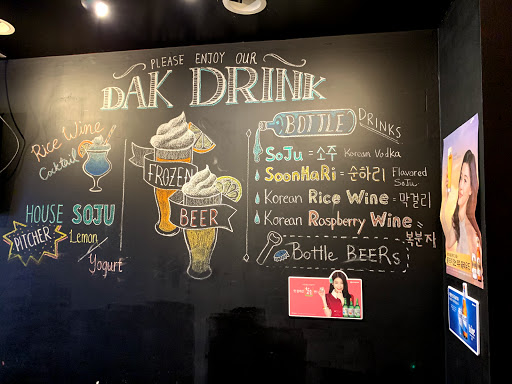 PLEASE ENJOY OUR
DAK DRINK
Rice Wine
Cocktail
HOUSE SOJU
PITCHER
Lemon
/Yogurt
FROZEN
BEER
BOTTLE DRINKS
SoJu = 소주 Korean Vodka
SoonHaRi = 순하리 Flavored SoJu
Korean Rice Wine = 막걸리
Korean Rospberry Wine = 복분자
Bottle BEERs